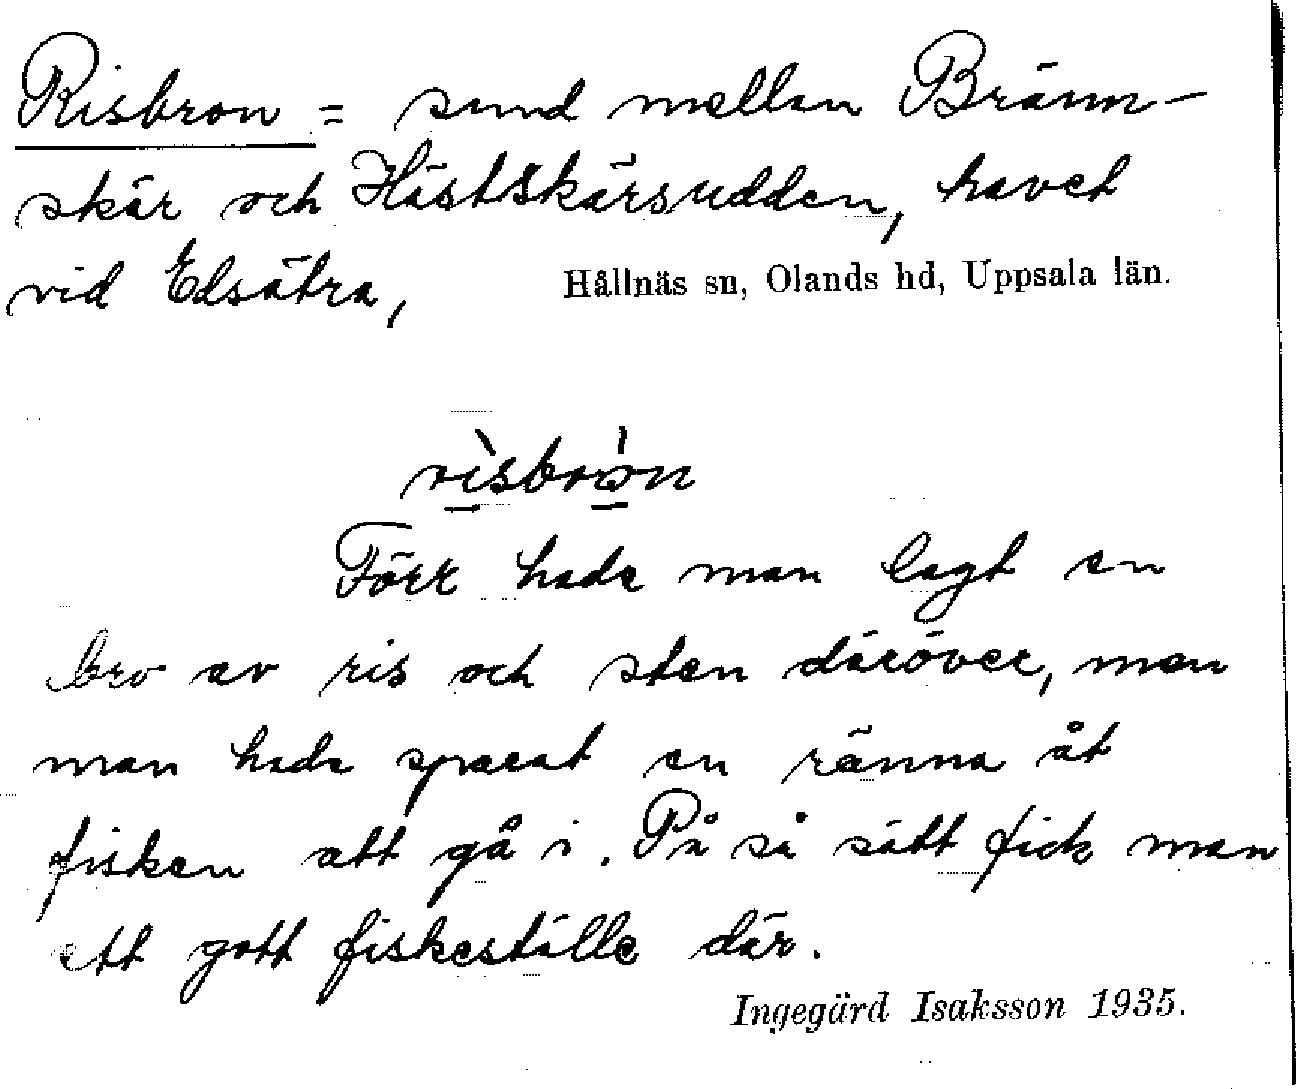 Risbron = sund mellan Bränn-
skär och Hästskärsudden, havet
vid Edsätra, Hållnäs sn, Olands hd, Uppsala län.
rìsbrón
Förr hade man lagt en
bro av ris och sten däröver, men
man hade sparat en ränna åt
fisken att gå i. På så sätt fick man
ett gott fiskeställe där.
Ingegärd Isaksson 1935.